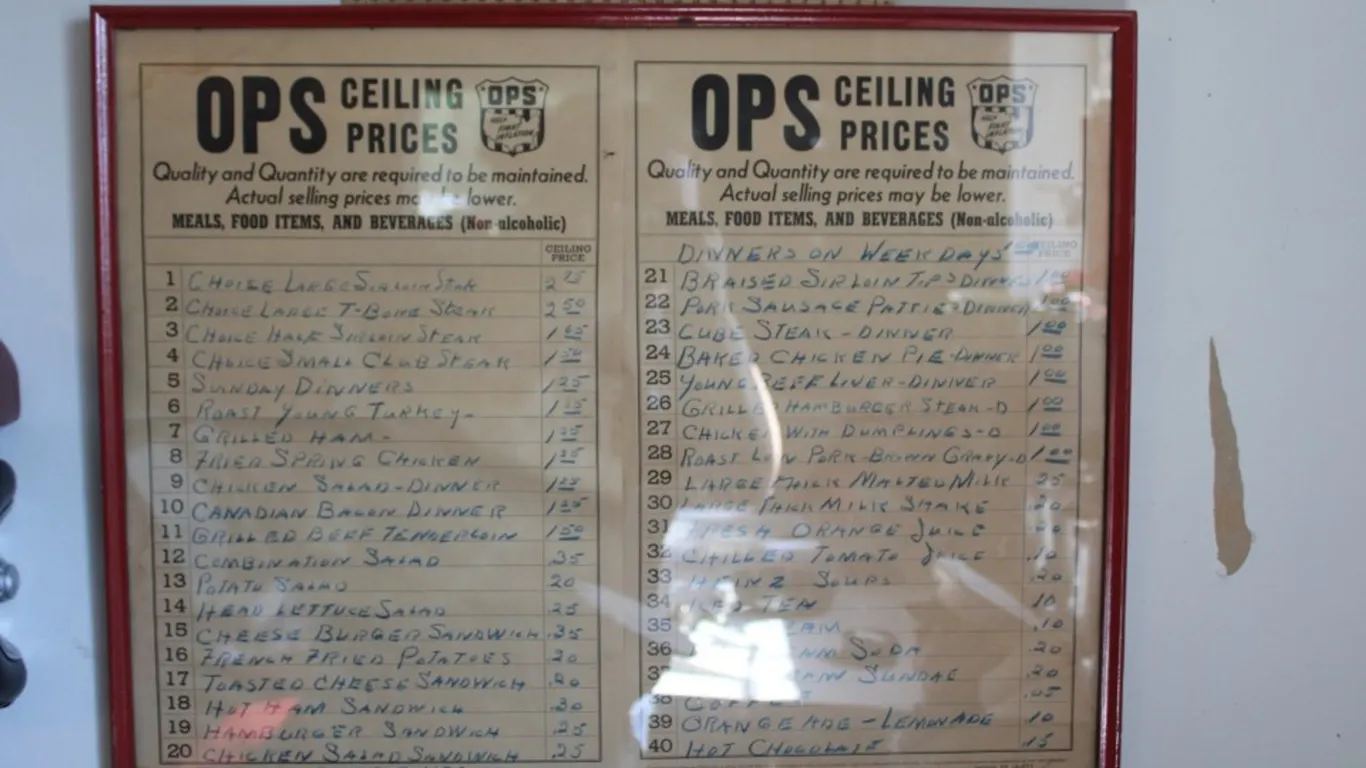 OPS CEILING PRICES
OPS
HELP FIGHT INFLATION
Quality and Quantity are required to be maintained.
Actual selling prices may be lower.
MEALS, FOOD ITEMS, AND BEVERAGES (Non-alcoholic)
CEILING PRICE
1 CHOISE LARGE SIRLOIN STEAK 2 25
2 CHOICE LARGE T-BONE STEAK 2 50
3 CHOICE HALF SIRLOIN STEAK 1
4 CHOICE SMALL CLUB STEAK 1 50
5 SUNDAY DINNERS 1 25
6 ROAST YOUNG TURKEY- 1
7 GRILLED HAM- 1 25
8 FRIED SPRING CHICKEN 1 25
9 CHICKEN SALAD-DINNER 1 25
10 CANADIAN BACON DINNER 1
11 GRILLED BEEF TENDERLOIN 1 50
12 COMBINATION SALAD .35
13 POTATO SALAD 20
14 HEAD LETTUCE SALAD .25
15 CHEESE BURGER SANDWICH .35
16 FRENCH FRIED POTATOES .20
17 TOASTED CHEESE SANDWICH .20
18 HOT HAM SANDWICH .30
19 HAMBURGER SANDWICH .25
20 CHICKEN SALAD SANDWICH .25
OPS CEILING PRICES
OPS
HELP FIGHT INFLATION
Quality and Quantity are required to be maintained.
Actual selling prices may be lower.
MEALS, FOOD ITEMS, AND BEVERAGES (Non-alcoholic)
DINNERS ON WEEK DAYS CEILING PRICE
21 BRAISED SIRLOIN TIPS DINNER 1 00
22 PORK SAUSAGE PATTIE-DINNER 1 00
23 CUBE STEAK-DINNER 1 00
24 BAKED CHICKEN PIE-DINNER 1 00
25 YOUNG BEEF LIVER-DINNER 1 00
26 GRILLED HAMBURGER STEAK-D 1 00
27 CHICKEN WITH DUMPLINGS-D 1 00
28 ROAST LOIN PORK-BROWN GRAVY-D 1 00
29 LARGE THICK MALTED MILK 25
30 LARGE THICK MILK SHAKE .20
31 FRESH ORANGE JUICE .20
32 CHILLED TOMATO JUICE .10
33 HEINZ SOUPS .20
34 ICED TEA 10
35 .10
36 SODA .20
37 SUNDAE .20
38 .05
39 ORANGE ADE - LEMONADE 10
40 HOT CHOCOLATE .15